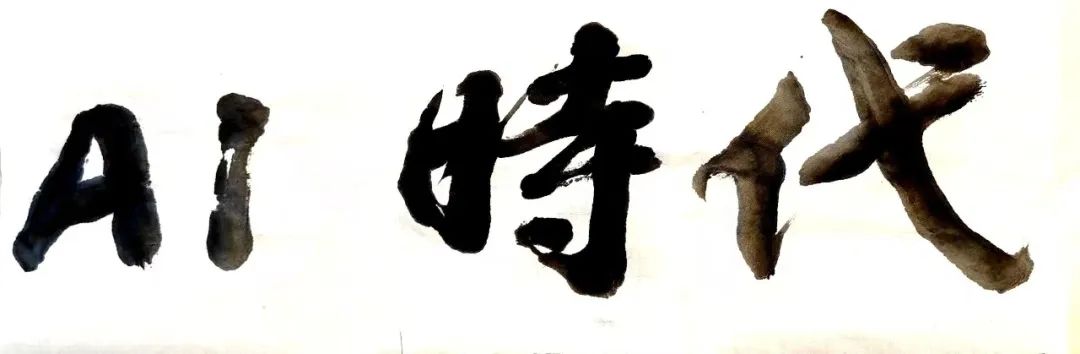 AI 時代